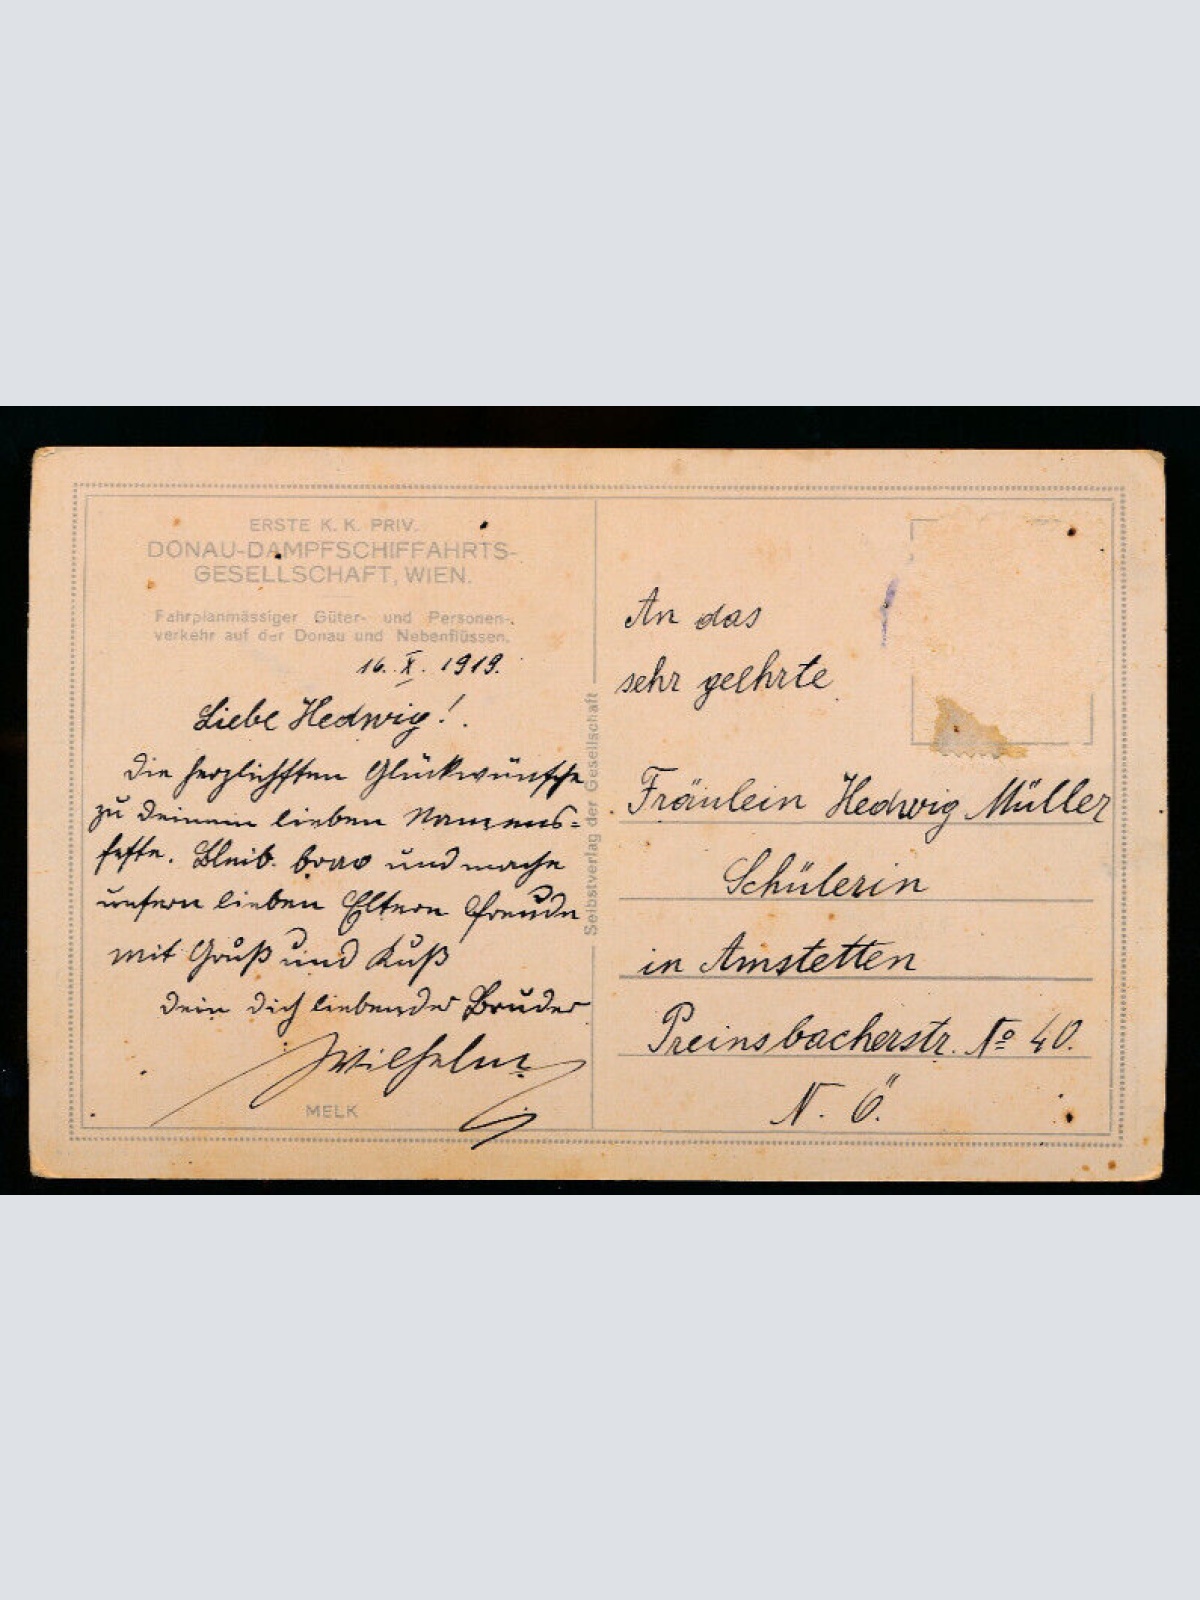 ERSTE K. K. PRIV.
DONAU-DAMPFSCHIFFAHRTS-
GESELLSCHAFT, WIEN.
Fahrplanmässiger Güter- und Personen-
verkehr auf der Donau und Nebenflüssen.
16. X. 1919.
Liebe Hedwig!
Die herzlichsten Glückwünsche
zu Deinem lieben Namens=
feste. Bleib brav und mache
unsern lieben Eltern Freude
mit Gruß und Kuß
Dein dich liebender Bruder
Wilhelm
MELK
Selbstverlag der Gesellschaft
An das
sehr geehrte
Fräulein Hedwig Müller
Schülerin
in Amstetten
Preinsbacherstr. No 40.
N. Ö.